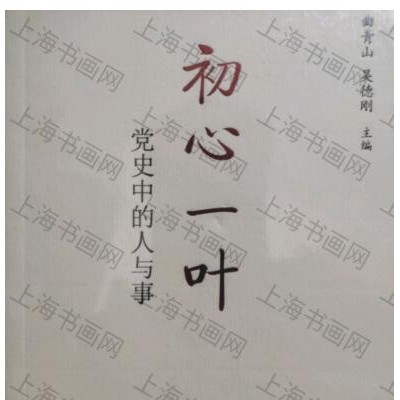 曲青山 吴德刚 主编
初心一叶
党史中的人与事
上海书画网
上海书画网
上海书画网
上海书画网
上海书画网
上海书画网
上海书画网
上海书画网
上海书画网